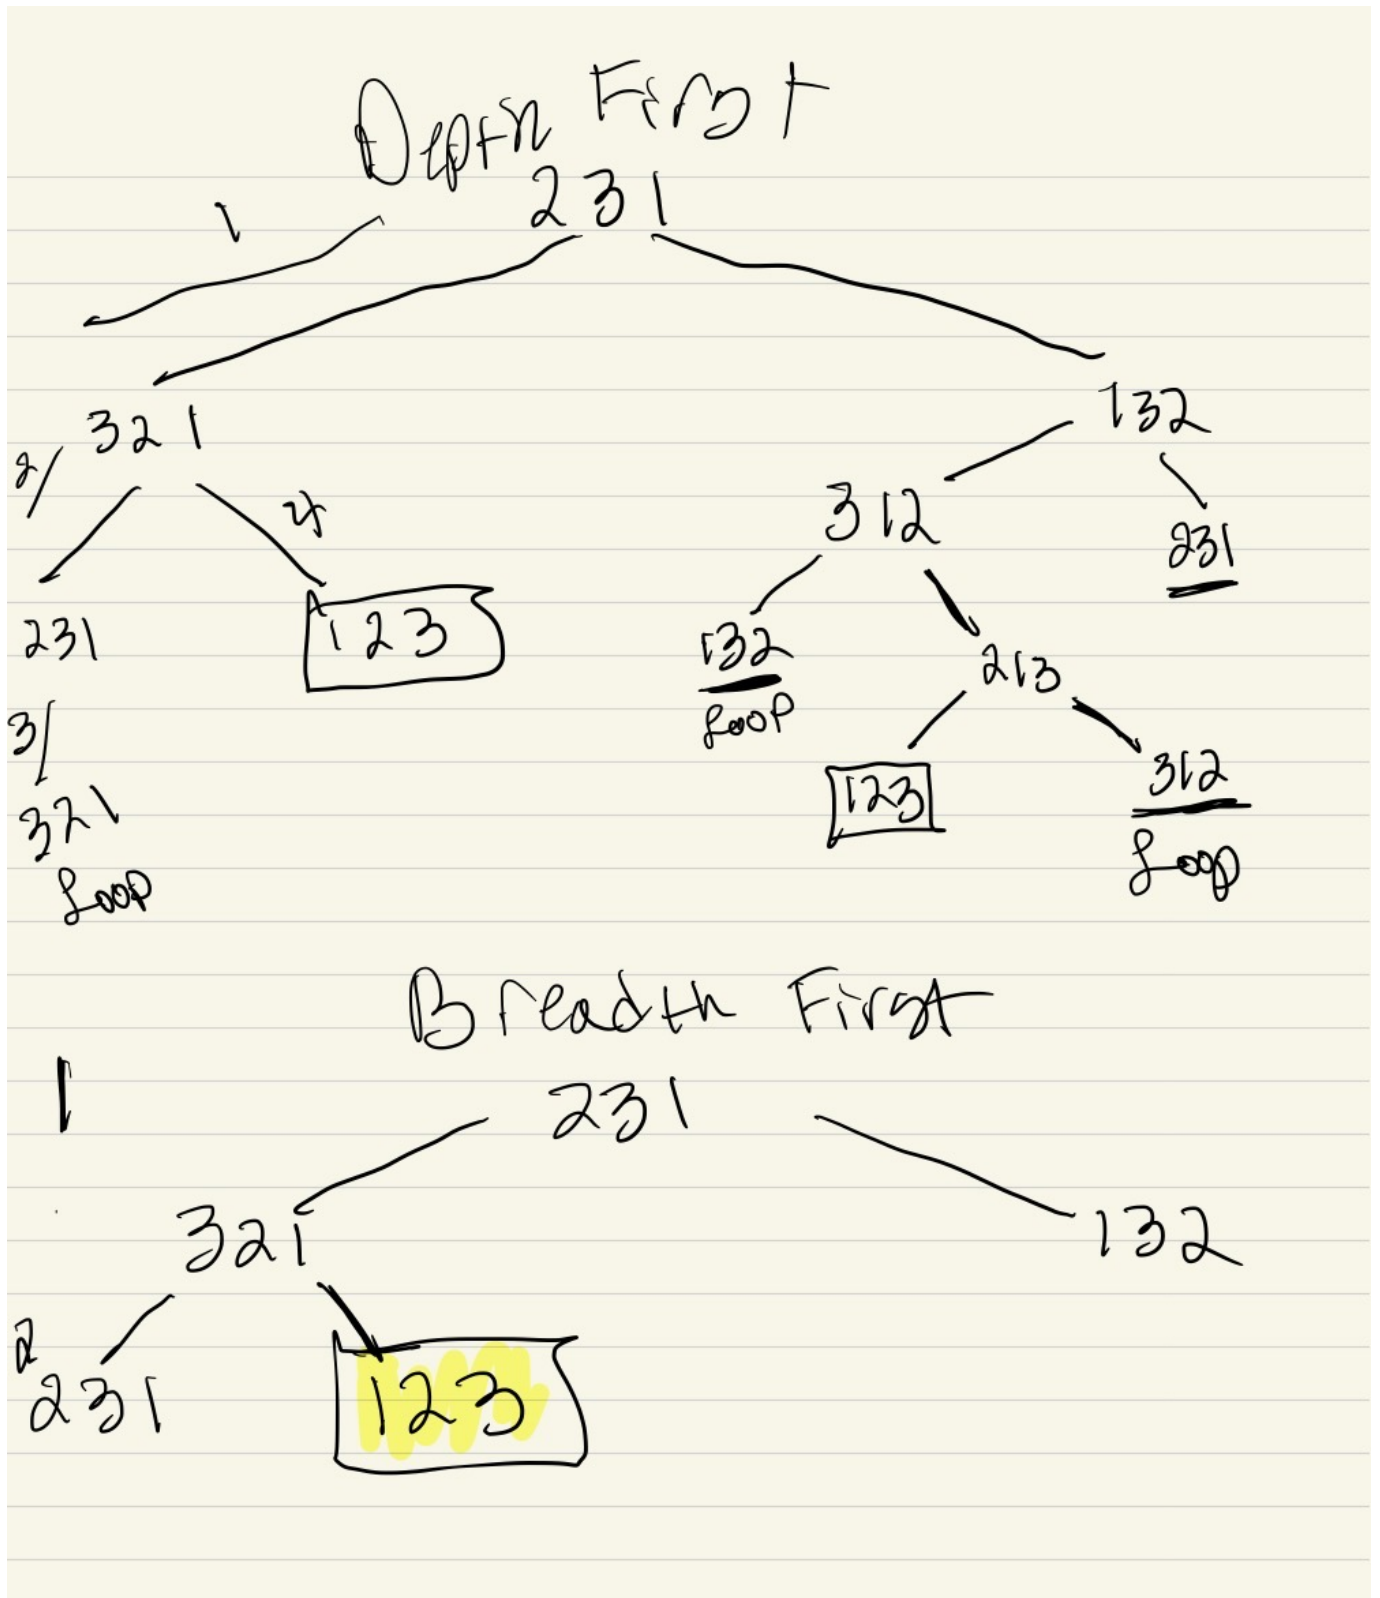 Depth First
231
1
321
132
2/
4
312
231
231
123
132
213
Loop
3/
123
312
321
Loop
Loop
Breadth First
1
231
321
132
2
231
123